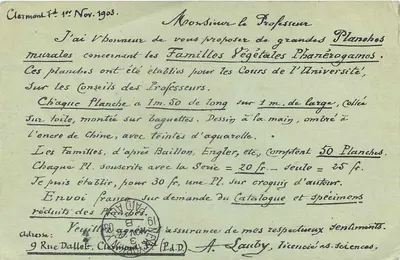 Clermont Fd 1er Nov. 1903.
Monsieur le Professeur
J'ai l'honneur de vous proposer de grandes Planches
murales concernant les Familles Végétales Phanérogames.
Ces planches ont été établies pour les Cours de l'Université,
sur les Conseils des Professeurs.
Chaque Planche a 1m.50 de long sur 1m. de large, collée
sur toile, montée sur baguettes. Dessin à la main, ombré à
l'encre de Chine, avec teintes d'aquarelle.
Les Familles, d'après Baillon, Engler, etc, comptent 50 Planches.
Chaque Pl. souscrite avec la Série = 20 fr. - seule = 25 fr.
Je puis établir, pour 30 fr, une Pl. sur croquis d'auteur.
Envoi franco sur demande du Catalogue et spécimens
réduits des Planches.
Veuillez assurance de mes respectueux sentiments.
Adresse:
9 Rue Dallet, Clermont (P.d.D) A. Lauby, licencié ès sciences.